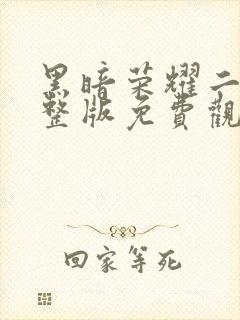 黑暗荣耀二
整版免費觀
回家等死